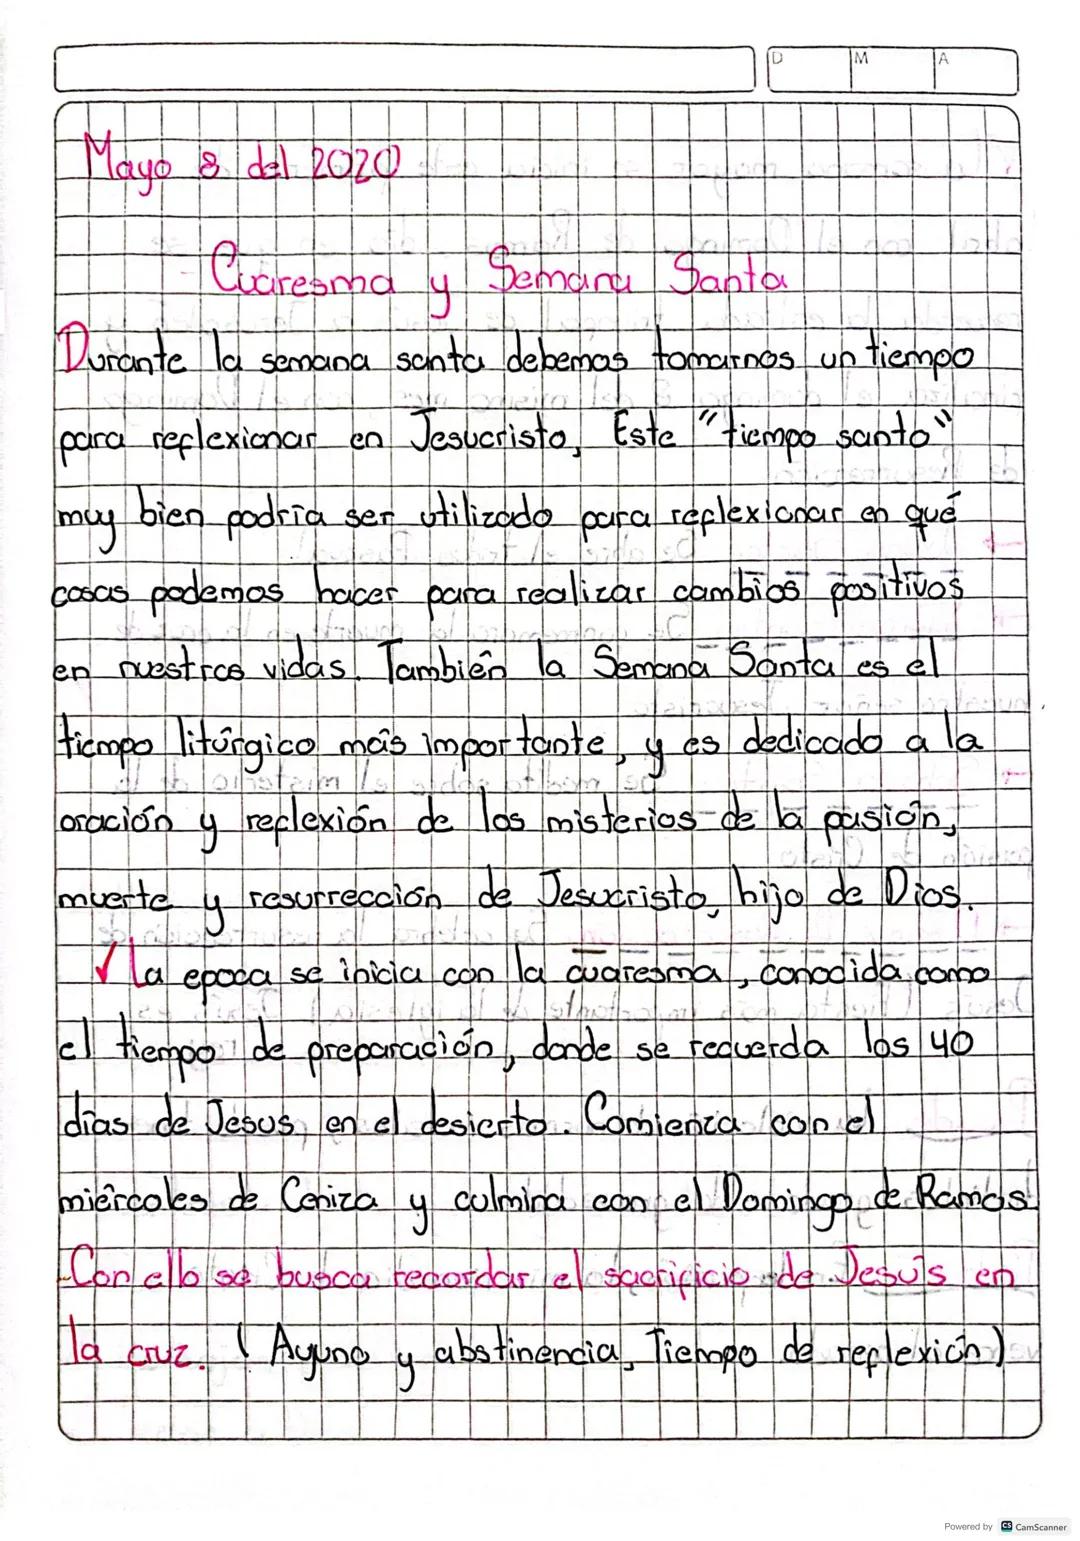 D M A
Mayo 8 del 2020
Cuaresma y Semana Santa
Durante la semana santa debemos tomarnos un tiempo
para reflexionar en Jesucristo, Este "tiempo santo"
muy bien podría ser utilizado para reflexionar en qué
cosas podemos hacer para realizar cambios positivos
en nuestras vidas. También la Semana Santa es el
tiempo litúrgico más importante, y es dedicado a la
oración y reflexión de los misterios de la pasión,
muerte y resurrección de Jesucristo, hijo de Dios.
✓ La epoca se inicia con la cuaresma, conocida como
el tiempo de preparación, donde se recuerda los 40
días de Jesus en el desierto. Comienza con el
miércoles de Ceniza y culmina con el Domingo de Ramos
Con ello se busca recordar el sacrificio de Jesús en
la cruz. (Ayuno y abstinencia, Tiempo de reflexión)
Powered by CS CamScanner